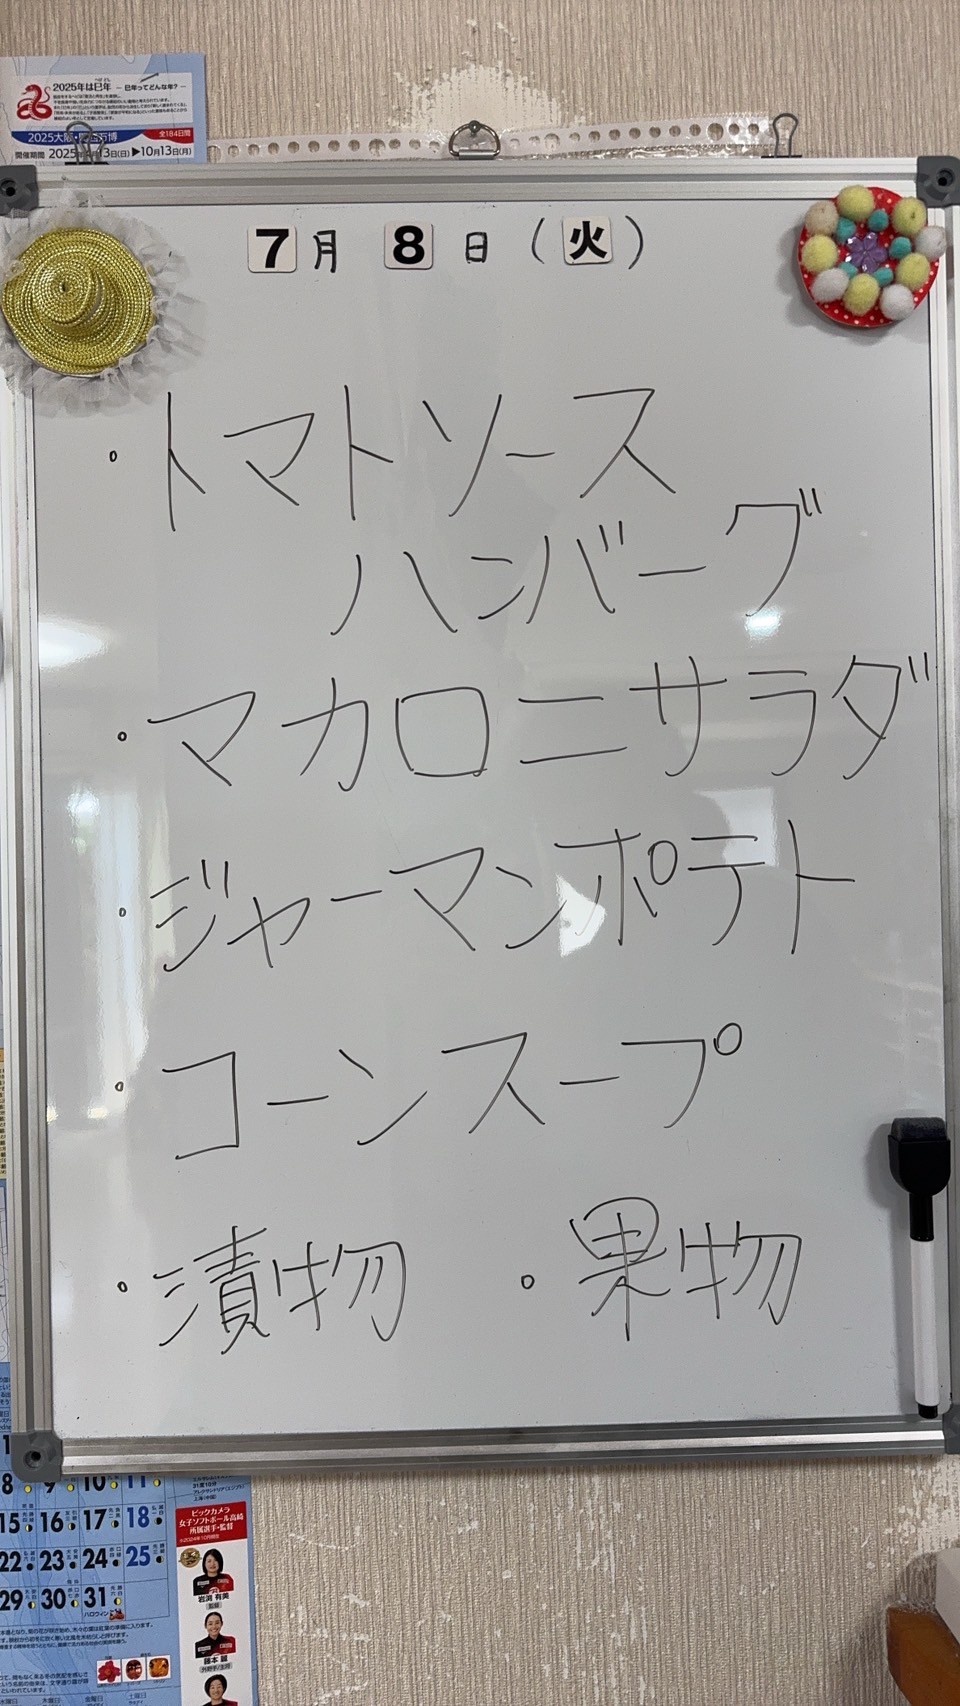 2025年は巳年 ― 巳年ってどんな年? ―
全184日間
開催期間 2025年4月13日(日)▶10月13日(月)
7月 8日(火)
・トマトソース
ハンバーグ
・マカロニサラダ
・ジャーマンポテト
・コーンスープ
・漬物 ・果物
8 9 10 11
15 16 17 18
22 23 24 25
29 30 31
ハロウィン
ビックカメラ
女子ソフトボール高崎
所属選手・監督
岩渕 有美
監督
藤本 麗